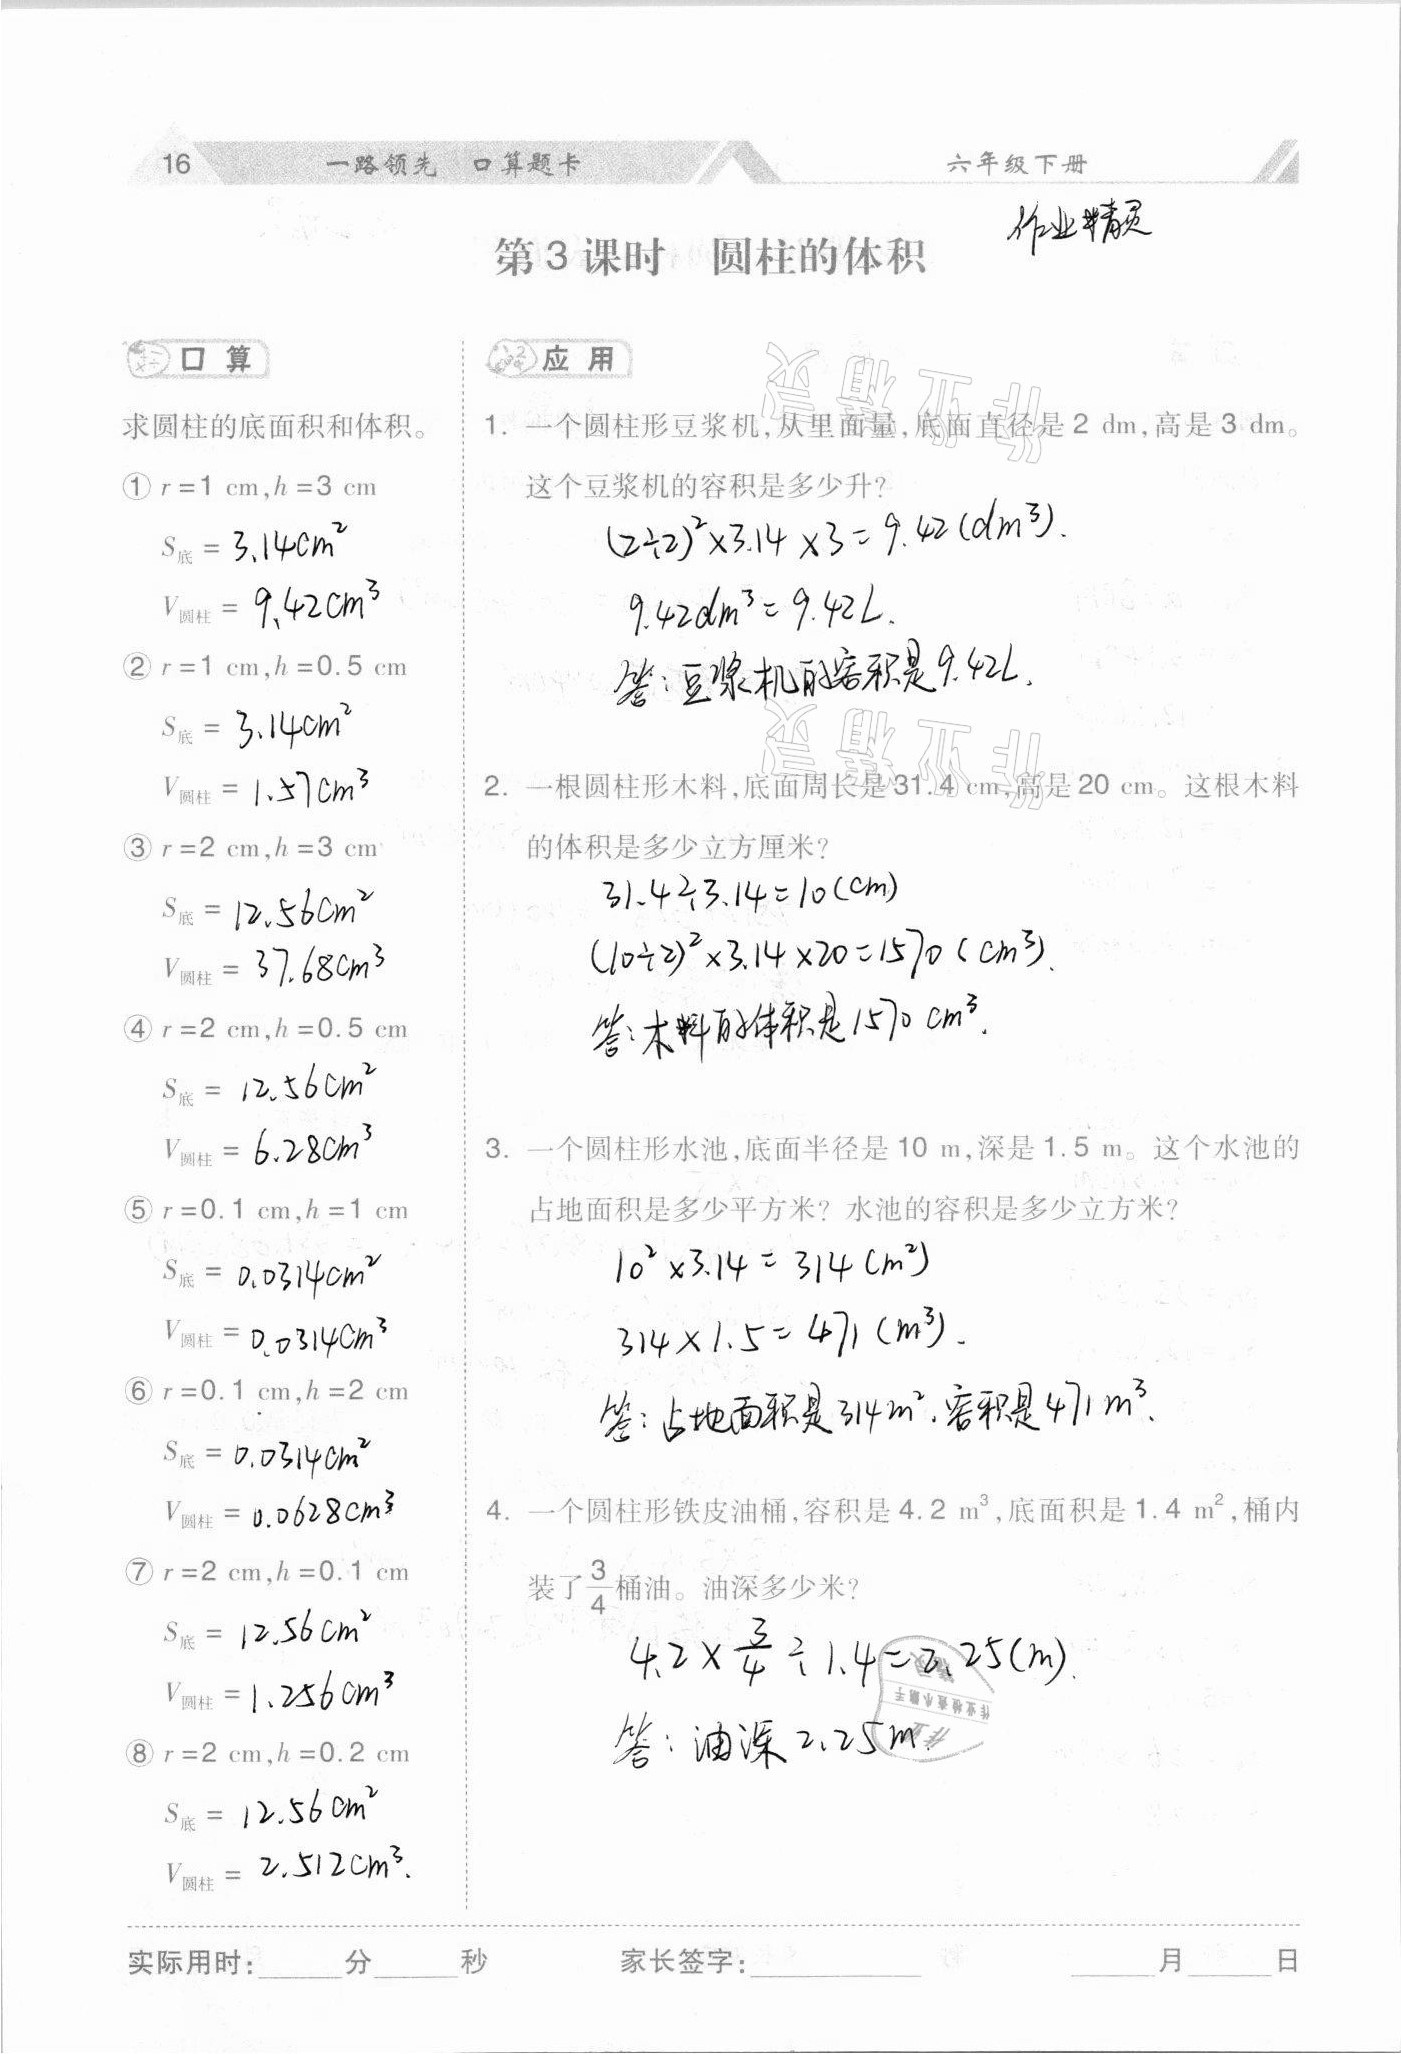 16 一路领先 口算题卡 六年级下册
作业精灵
第3课时 圆柱的体积
口算
求圆柱的底面积和体积。
① r=1 cm,h=3 cm
S底 = 3.14cm²
V圆柱 = 9.42cm³
② r=1 cm,h=0.5 cm
S底 = 3.14cm²
V圆柱 = 1.57cm³
③ r=2 cm,h=3 cm
S底 = 12.56cm²
V圆柱 = 37.68cm³
④ r=2 cm,h=0.5 cm
S底 = 12.56cm²
V圆柱 = 6.28cm³
⑤ r=0.1 cm,h=1 cm
S底 = 0.0314cm²
V圆柱 = 0.0314cm³
⑥ r=0.1 cm,h=2 cm
S底 = 0.0314cm²
V圆柱 = 0.0628cm³
⑦ r=2 cm,h=0.1 cm
S底 = 12.56cm²
V圆柱 = 1.256cm³
⑧ r=2 cm,h=0.2 cm
S底 = 12.56cm²
V圆柱 = 2.512cm³.
应用
1. 一个圆柱形豆浆机,从里面量,底面直径是2 dm,高是3 dm。
这个豆浆机的容积是多少升?
(2÷2)²×3.14×3=9.42(dm³).
9.42dm³=9.42L.
答:豆浆机的容积是9.42L.
作业精灵
作业精灵
2. 一根圆柱形木料,底面周长是31.4 cm,高是20 cm。这根木料
的体积是多少立方厘米?
31.4÷3.14=10(cm)
(10÷2)²×3.14×20=1570(cm³).
答:木料的体积是1570cm³.
3. 一个圆柱形水池,底面半径是10 m,深是1.5 m。这个水池的
占地面积是多少平方米?水池的容积是多少立方米?
10²×3.14=314(m²)
314×1.5=471(m³).
答:占地面积是314m².容积是471m³.
4. 一个圆柱形铁皮油桶,容积是4.2 m³,底面积是1.4 m²,桶内
装了3/4桶油。油深多少米?
4.2×3/4÷1.4=2.25(m).
答:油深2.25m.
作业
作业检查小助手
精灵
实际用时:______分______秒 家长签字:____________ ______月______日